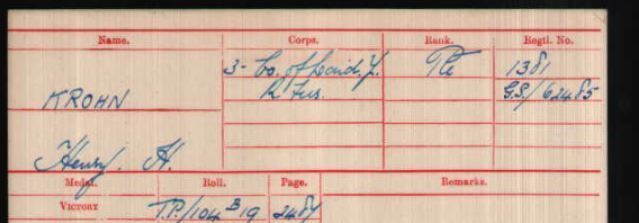 Name. Corps. Rank. Regtl. No.
3- Co. of Lond. Y. Pte 1381
R Fus. G.S./62485
KROHN
Henry. H.
Medal. Roll. Page. Remarks.
VICTORY T.P./104 B 19 2484